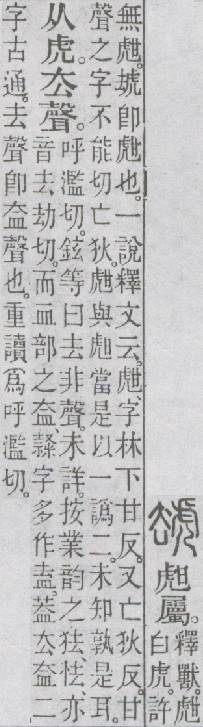 䖑屬。釋獸。甝
白虎。許
無甝。䖑卽甝也。一說釋文云。甝、字林下甘反。又亡狄反。甘
聲之字不能切亡狄。甝與䖑當是以一譌二。未知孰是耳。
从虎。厺聲。呼濫切。鉉等曰去非聲。未詳。按業韵之㹤怯亦
音去劫切。而皿部之盇、𧯷字多作盍。葢厺盇二
字古通。去聲卽盇聲也。重讀爲呼濫切。